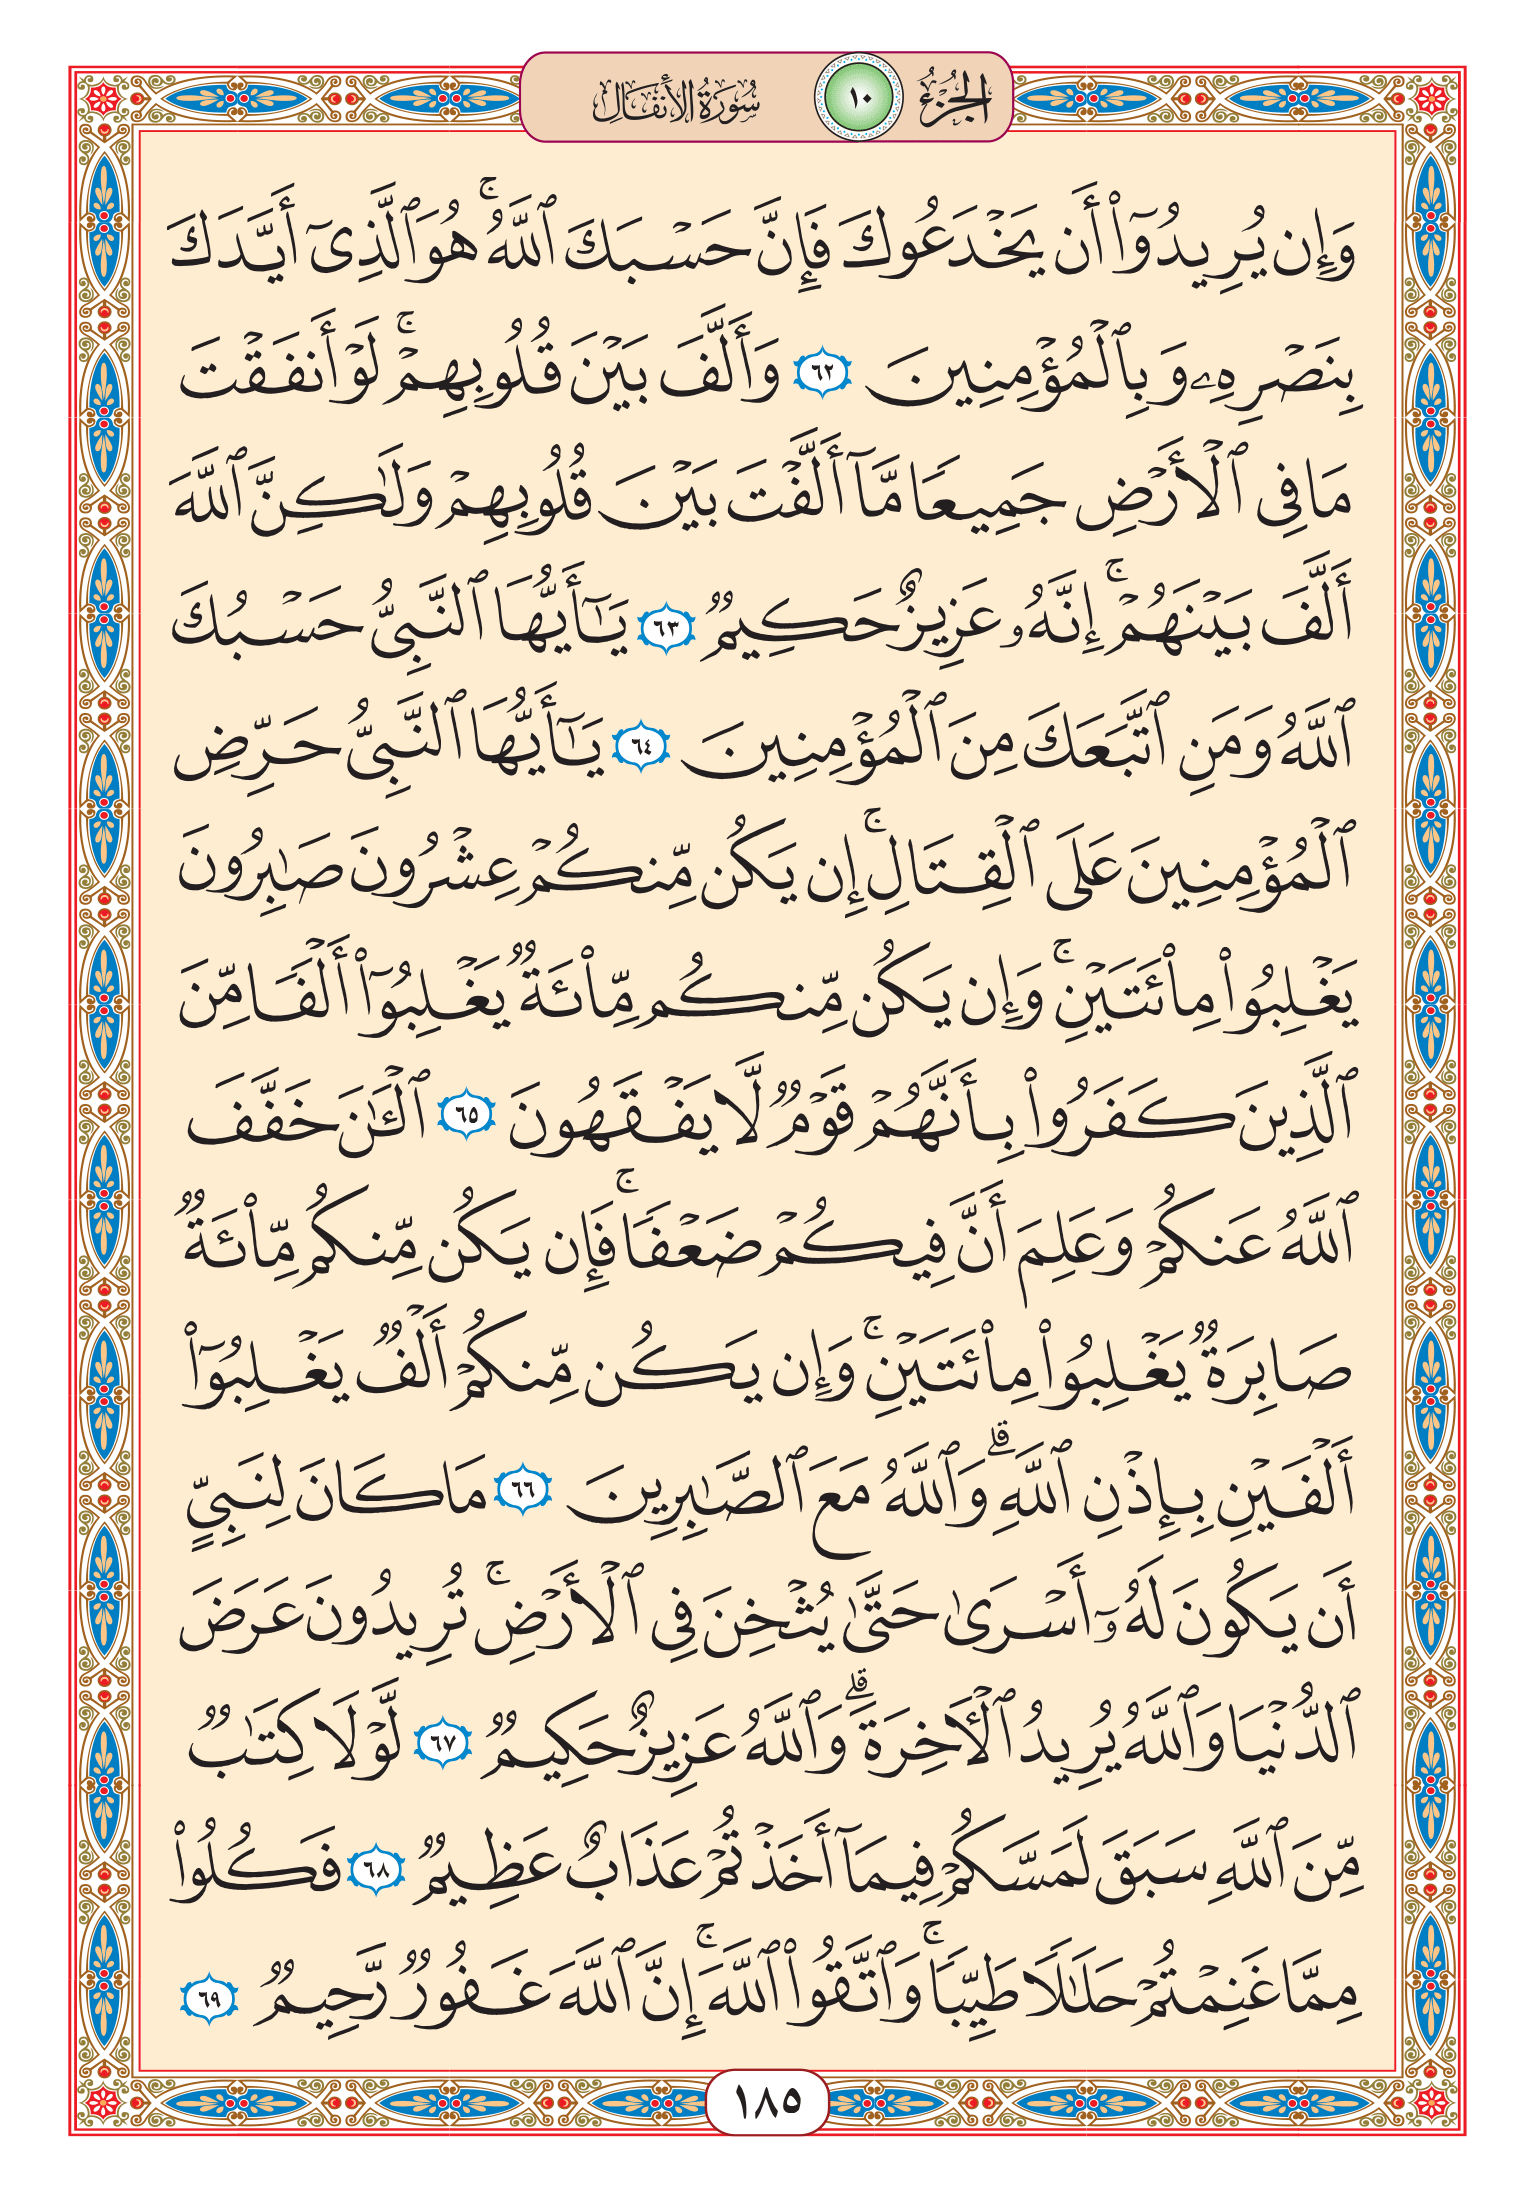 الجزء ١٠ سورة الأنفال
وَإِن يُرِيدُوٓا۟ أَن يَخْدَعُوكَ فَإِنَّ حَسْبَكَ ٱللَّهُ ۚ هُوَ ٱلَّذِىٓ أَيَّدَكَ
بِنَصْرِهِۦ وَبِٱلْمُؤْمِنِينَ ٦٢ وَأَلَّفَ بَيْنَ قُلُوبِهِمْ ۚ لَوْ أَنفَقْتَ
مَا فِى ٱلْأَرْضِ جَمِيعًا مَّآ أَلَّفْتَ بَيْنَ قُلُوبِهِمْ وَلَٰكِنَّ ٱللَّهَ
أَلَّفَ بَيْنَهُمْ ۚ إِنَّهُۥ عَزِيزٌ حَكِيمٌ ٦٣ يَٰٓأَيُّهَا ٱلنَّبِىُّ حَسْبُكَ
ٱللَّهُ وَمَنِ ٱتَّبَعَكَ مِنَ ٱلْمُؤْمِنِينَ ٦٤ يَٰٓأَيُّهَا ٱلنَّبِىُّ حَرِّضِ
ٱلْمُؤْمِنِينَ عَلَى ٱلْقِتَالِ ۚ إِن يَكُن مِّنكُمْ عِشْرُونَ صَٰبِرُونَ
يَغْلِبُوا۟ مِا۟ئَتَيْنِ ۚ وَإِن يَكُن مِّنكُم مِّا۟ئَةٌ يَغْلِبُوٓا۟ أَلْفًا مِّنَ
ٱلَّذِينَ كَفَرُوا۟ بِأَنَّهُمْ قَوْمٌ لَّا يَفْقَهُونَ ٦٥ ٱلْـَٰٔنَ خَفَّفَ
ٱللَّهُ عَنكُمْ وَعَلِمَ أَنَّ فِيكُمْ ضَعْفًا ۚ فَإِن يَكُن مِّنكُم مِّا۟ئَةٌ
صَابِرَةٌ يَغْلِبُوا۟ مِا۟ئَتَيْنِ ۚ وَإِن يَكُن مِّنكُمْ أَلْفٌ يَغْلِبُوٓا۟
أَلْفَيْنِ بِإِذْنِ ٱللَّهِ ۗ وَٱللَّهُ مَعَ ٱلصَّٰبِرِينَ ٦٦ مَا كَانَ لِنَبِىٍّ
أَن يَكُونَ لَهُۥٓ أَسْرَىٰ حَتَّىٰ يُثْخِنَ فِى ٱلْأَرْضِ ۚ تُرِيدُونَ عَرَضَ
ٱلدُّنْيَا وَٱللَّهُ يُرِيدُ ٱلْـَٔاخِرَةَ ۗ وَٱللَّهُ عَزِيزٌ حَكِيمٌ ٦٧ لَّوْلَا كِتَٰبٌ
مِّنَ ٱللَّهِ سَبَقَ لَمَسَّكُمْ فِيمَآ أَخَذْتُمْ عَذَابٌ عَظِيمٌ ٦٨ فَكُلُوا۟
مِمَّا غَنِمْتُمْ حَلَٰلًا طَيِّبًا ۚ وَٱتَّقُوا۟ ٱللَّهَ ۚ إِنَّ ٱللَّهَ غَفُورٌ رَّحِيمٌ ٦٩
١٨٥